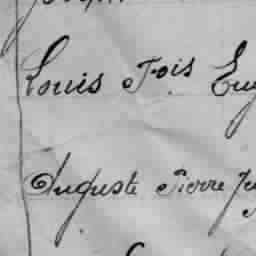 Louis Fois Eug
Auguste Pierre Ju